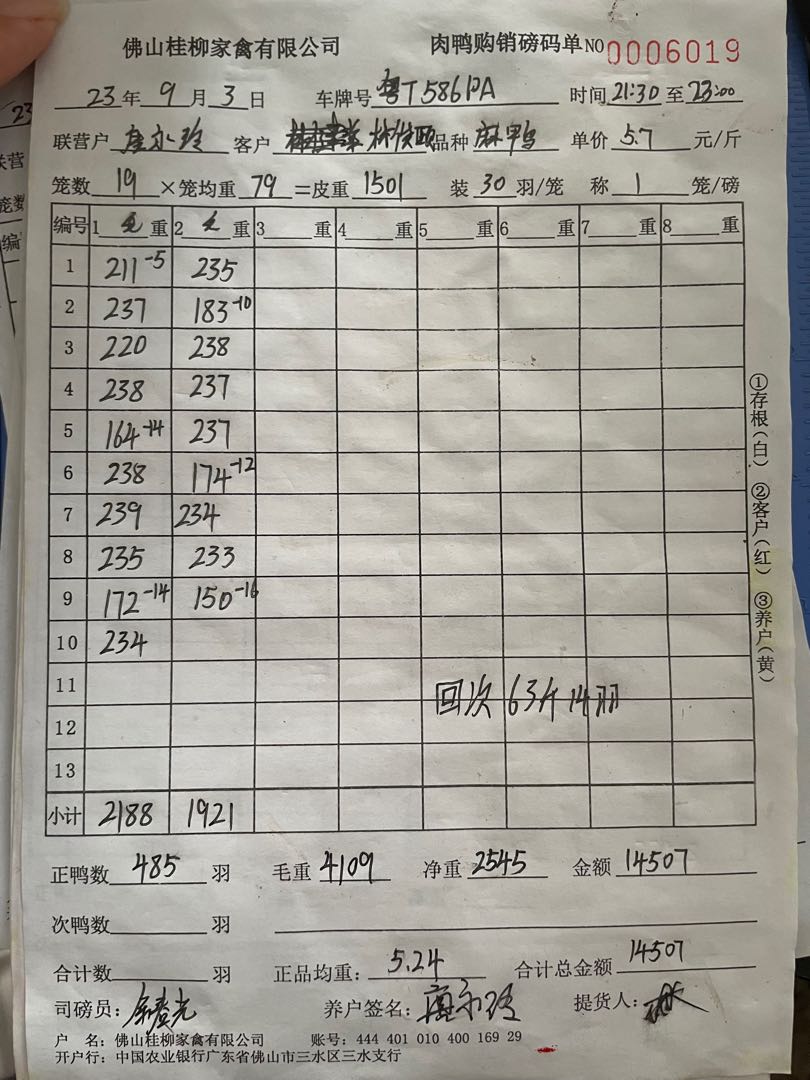 佛山桂柳家禽有限公司 肉鸭购销磅码单 NO 0006019
23年9月3日 车牌号 粤T586PA 时间 21:30 至 23:00
联营户 客户 品种 麻鸭 单价 5.7 元/斤
笼数 19 ×笼均重 79 =皮重 1501 装 30 羽/笼 称 1 笼/磅
编号 1 毛 重 2 毛 重 3 重 4 重 5 重 6 重 7 重 8 重
1 211-5 235
2 237 183-10
3 220 238
4 238 237
5 164-14 237
6 238 174-12
7 239 234
8 235 233
9 172-14 150-16
10 234
11 回次 63斤 14羽
12
13
小计 2188 1921
正鸭数 485 羽 毛重 4109 净重 2545 金额 14507
次鸭数 羽
合计数 羽 正品均重: 5.24 合计总金额 14507
司磅员: 养户签名: 提货人:
户 名: 佛山桂柳家禽有限公司 账号: 444 401 010 400 169 29
开户行: 中国农业银行广东省佛山市三水区三水支行
①存根(白) ②客户(红) ③养户(黄)